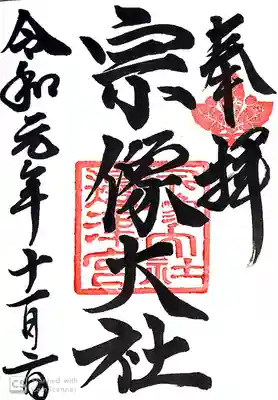 奉拝
宗像大社
令和元年十一月二日
CS Scanned with
CamScanner